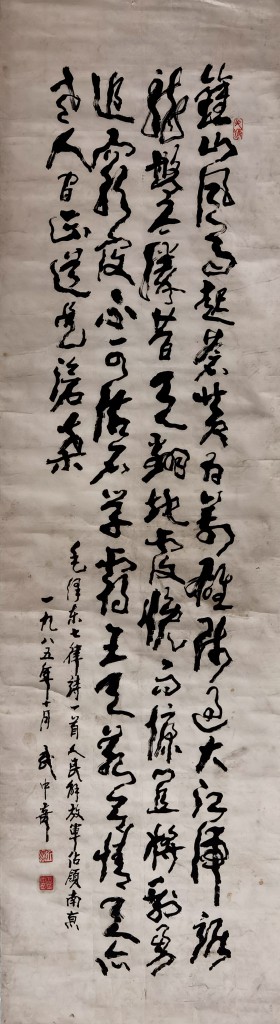 鍾山風雨起蒼黄百萬雄師過大江虎踞
龍盤今勝昔天翻地覆慨而慷宜將剩勇
追窮寇不可沽名學霸王天若有情天亦
老人間正道是滄桑
毛澤东七律詩一首人民解放軍佔領南京
一九八五年十月 武中奇